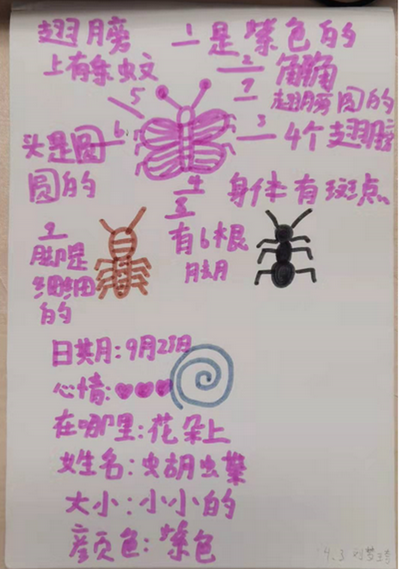 翅膀
上有条蚊
1 是紫色的
2 角触角
7 翅膀圆的
3 4个翅膀
5
6
头是圆
圆的
4 身体有斑点
8
有6根
脚
9
脚是
细细
的
日期:9月21日
心情:
在哪里:花朵上
姓名:
大小:小小的
颜色:紫色
4.3